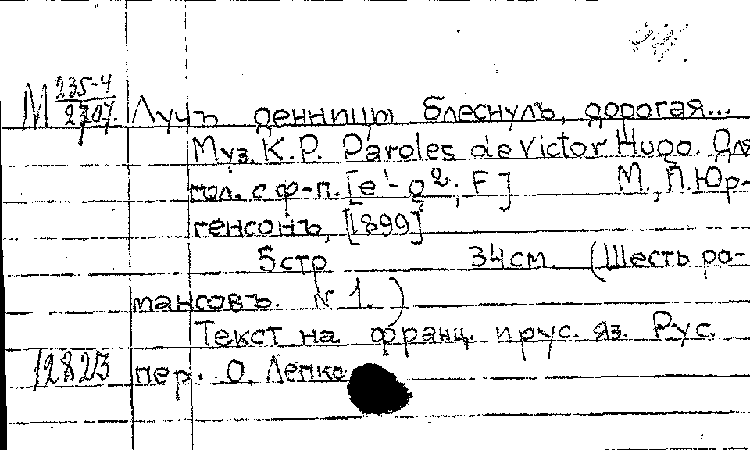 М 235-4
2707. Лучъ денницы блеснулъ, дорогая...
Муз. К.Р. Paroles de Victor Hugo. Для
гол. с ф-п. [e¹-g²; F] М., П. Юр-
генсонъ, [1899]
5 стр 34 см (Шесть ро-
мансовъ. № 1.)
Текст на франц. и рус. яз. Рус.
12823 пер. О. Лепко